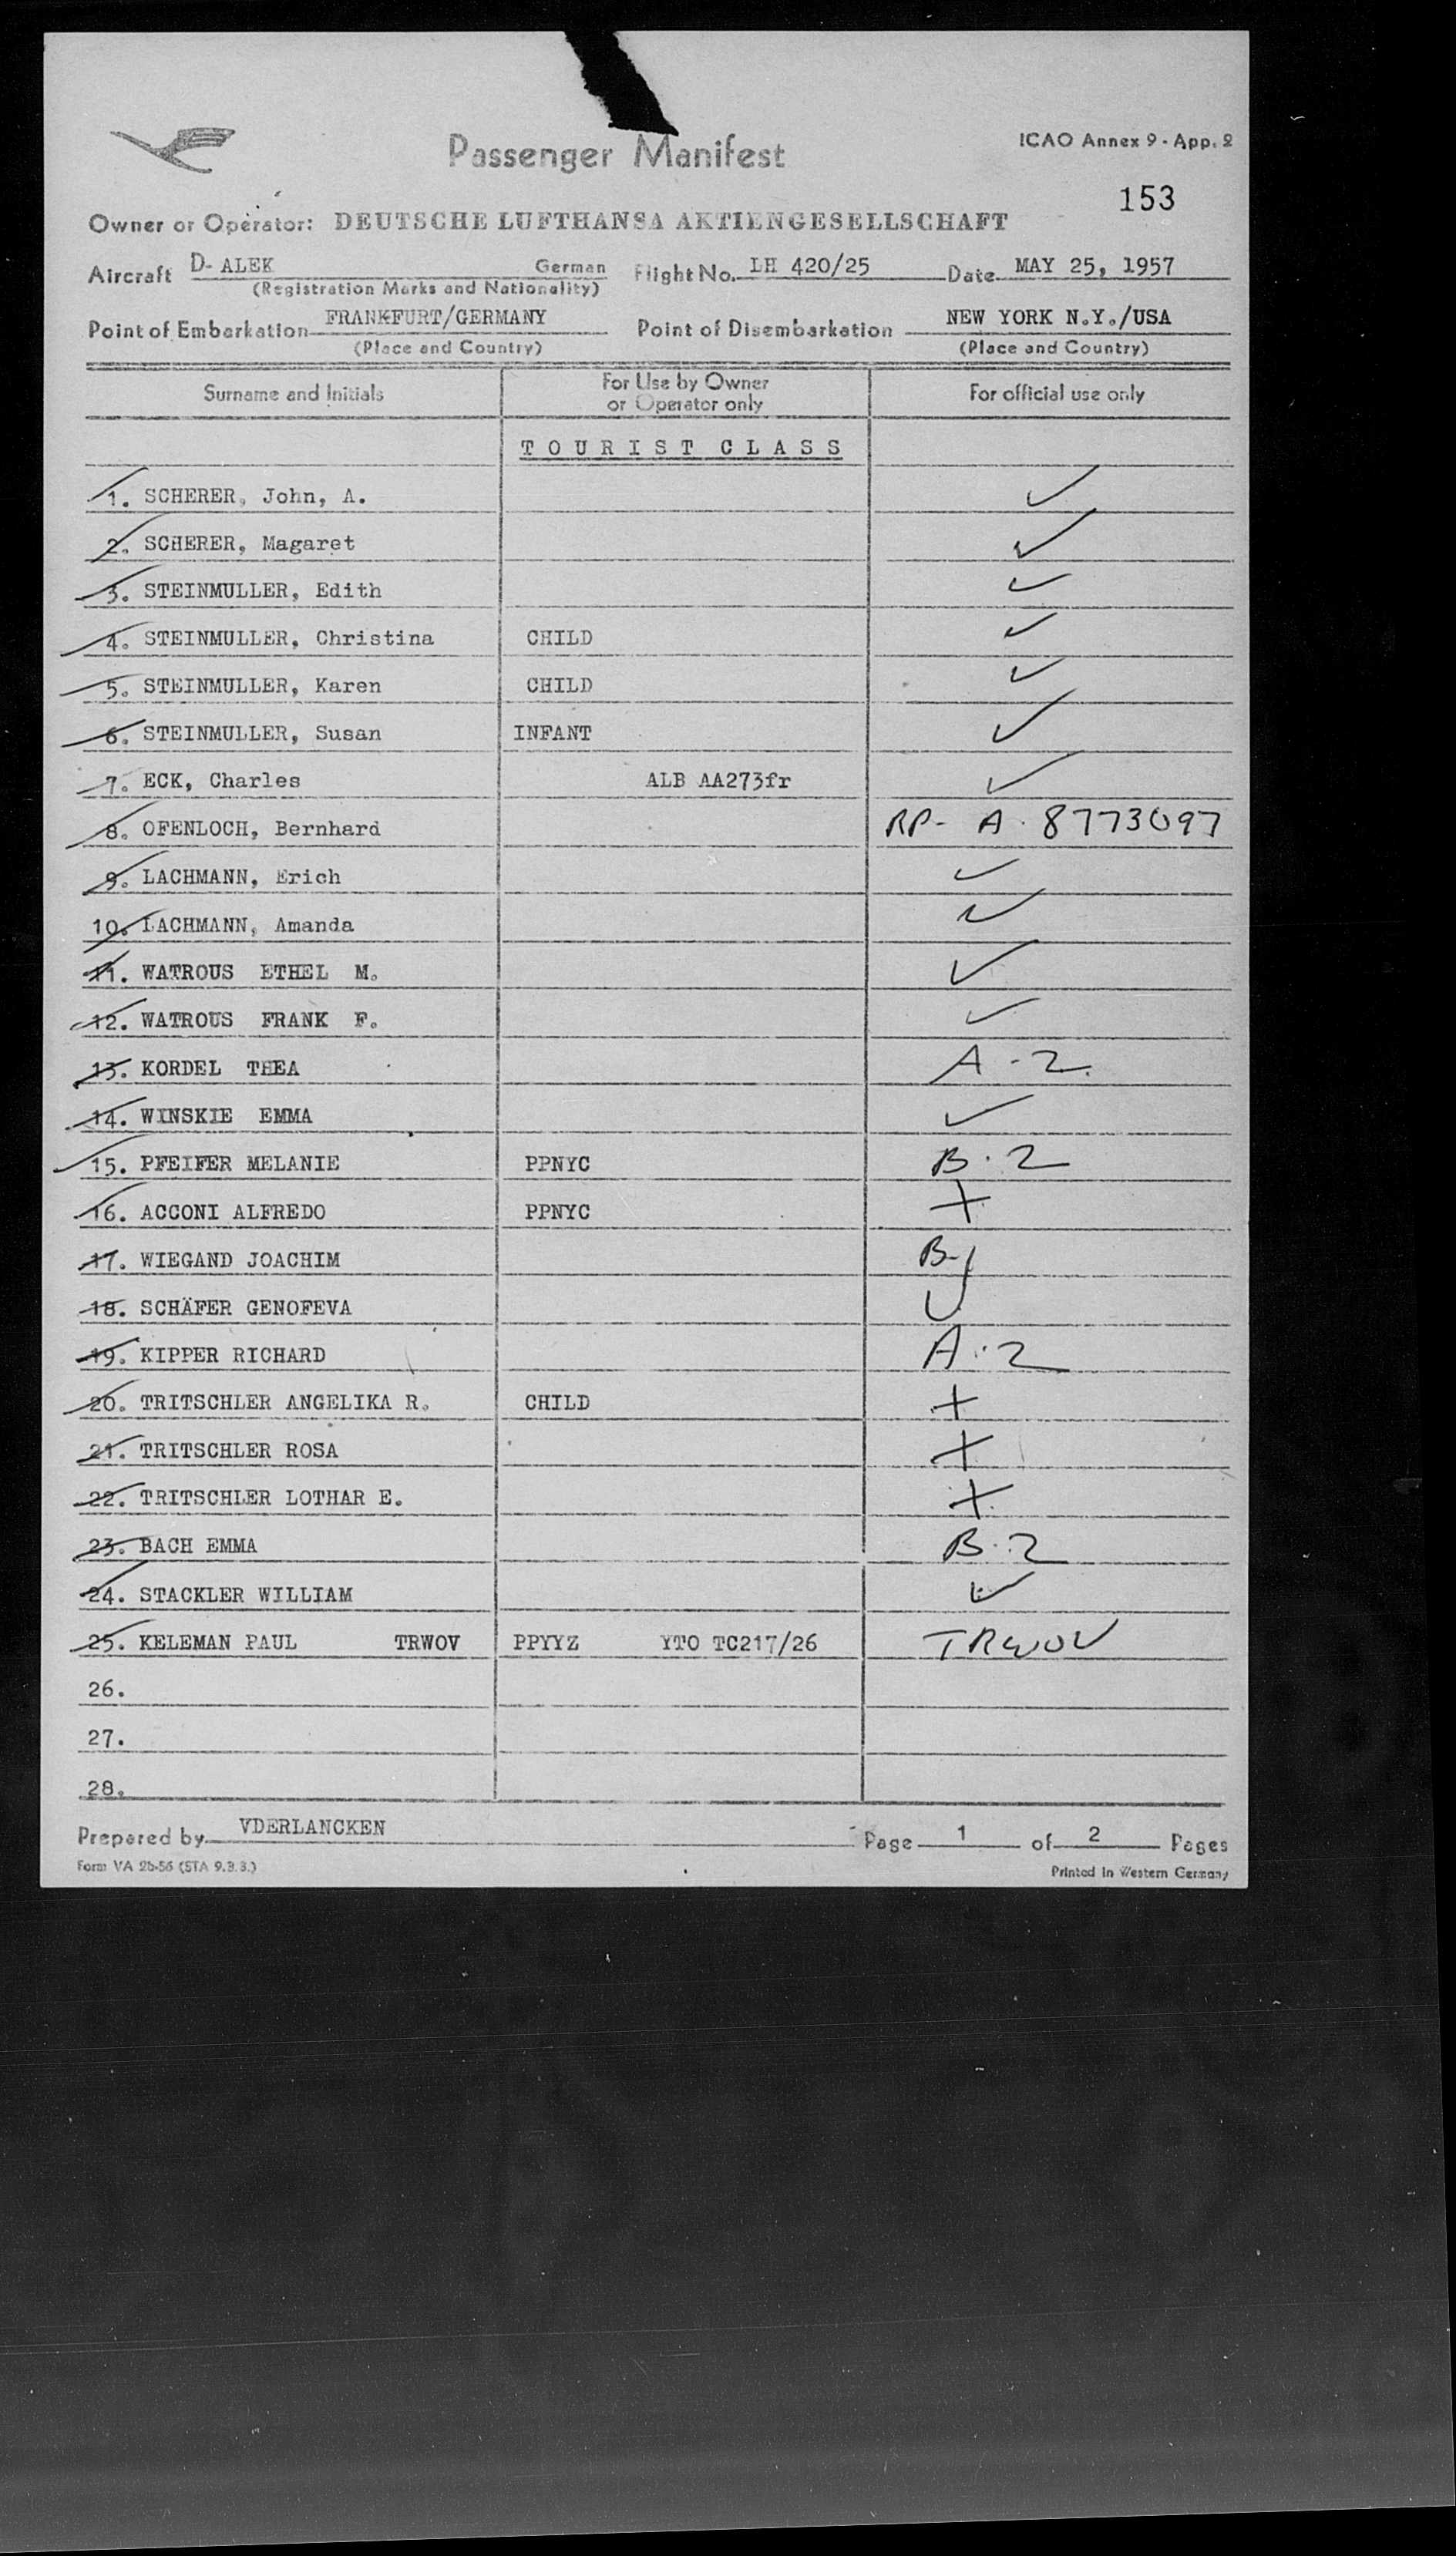 Passenger Manifest
ICAO Annex 9 - App. 2
153
Owner or Operator: DEUTSCHE LUFTHANSA AKTIENGESELLSCHAFT
Aircraft D- ALEK German Flight No. LH 420/25 Date MAY 25, 1957
(Registration Marks and Nationality)
Point of Embarkation FRANKFURT/GERMANY Point of Disembarkation NEW YORK N.Y./USA
(Place and Country) (Place and Country)
Surname and Initials For Use by Owner or Operator only For official use only
TOURIST CLASS
1. SCHERER, John, A. ✓
2. SCHERER, Magaret ✓
3. STEINMULLER, Edith ✓
4. STEINMULLER, Christina CHILD ✓
5. STEINMULLER, Karen CHILD ✓
6. STEINMULLER, Susan INFANT ✓
7. ECK, Charles ALB AA273fr ✓
8. OFENLOCH, Bernhard RP- A. 8773097
9. LACHMANN, Erich ✓
10. LACHMANN, Amanda ✓
11. WATROUS ETHEL M. ✓
12. WATROUS FRANK F. ✓
13. KORDEL THEA A-2.
14. WINSKIE EMMA ✓
15. PFEIFER MELANIE PPNYC B.2
16. ACCONI ALFREDO PPNYC +
17. WIEGAND JOACHIM B-1
18. SCHÄFER GENOFEVA ✓
19. KIPPER RICHARD A.2
20. TRITSCHLER ANGELIKA R. CHILD +
21. TRITSCHLER ROSA +
22. TRITSCHLER LOTHAR E. +
23. BACH EMMA B.2
24. STACKLER WILLIAM ✓
25. KELEMAN PAUL TRWOV PPYYZ YTO TC217/26 TRWOV
26.
27.
28.
Prepared by VDERLANCKEN Page 1 of 2 Pages
Form VA 2b-56 (STA 9.3.3.) Printed in Western Germany